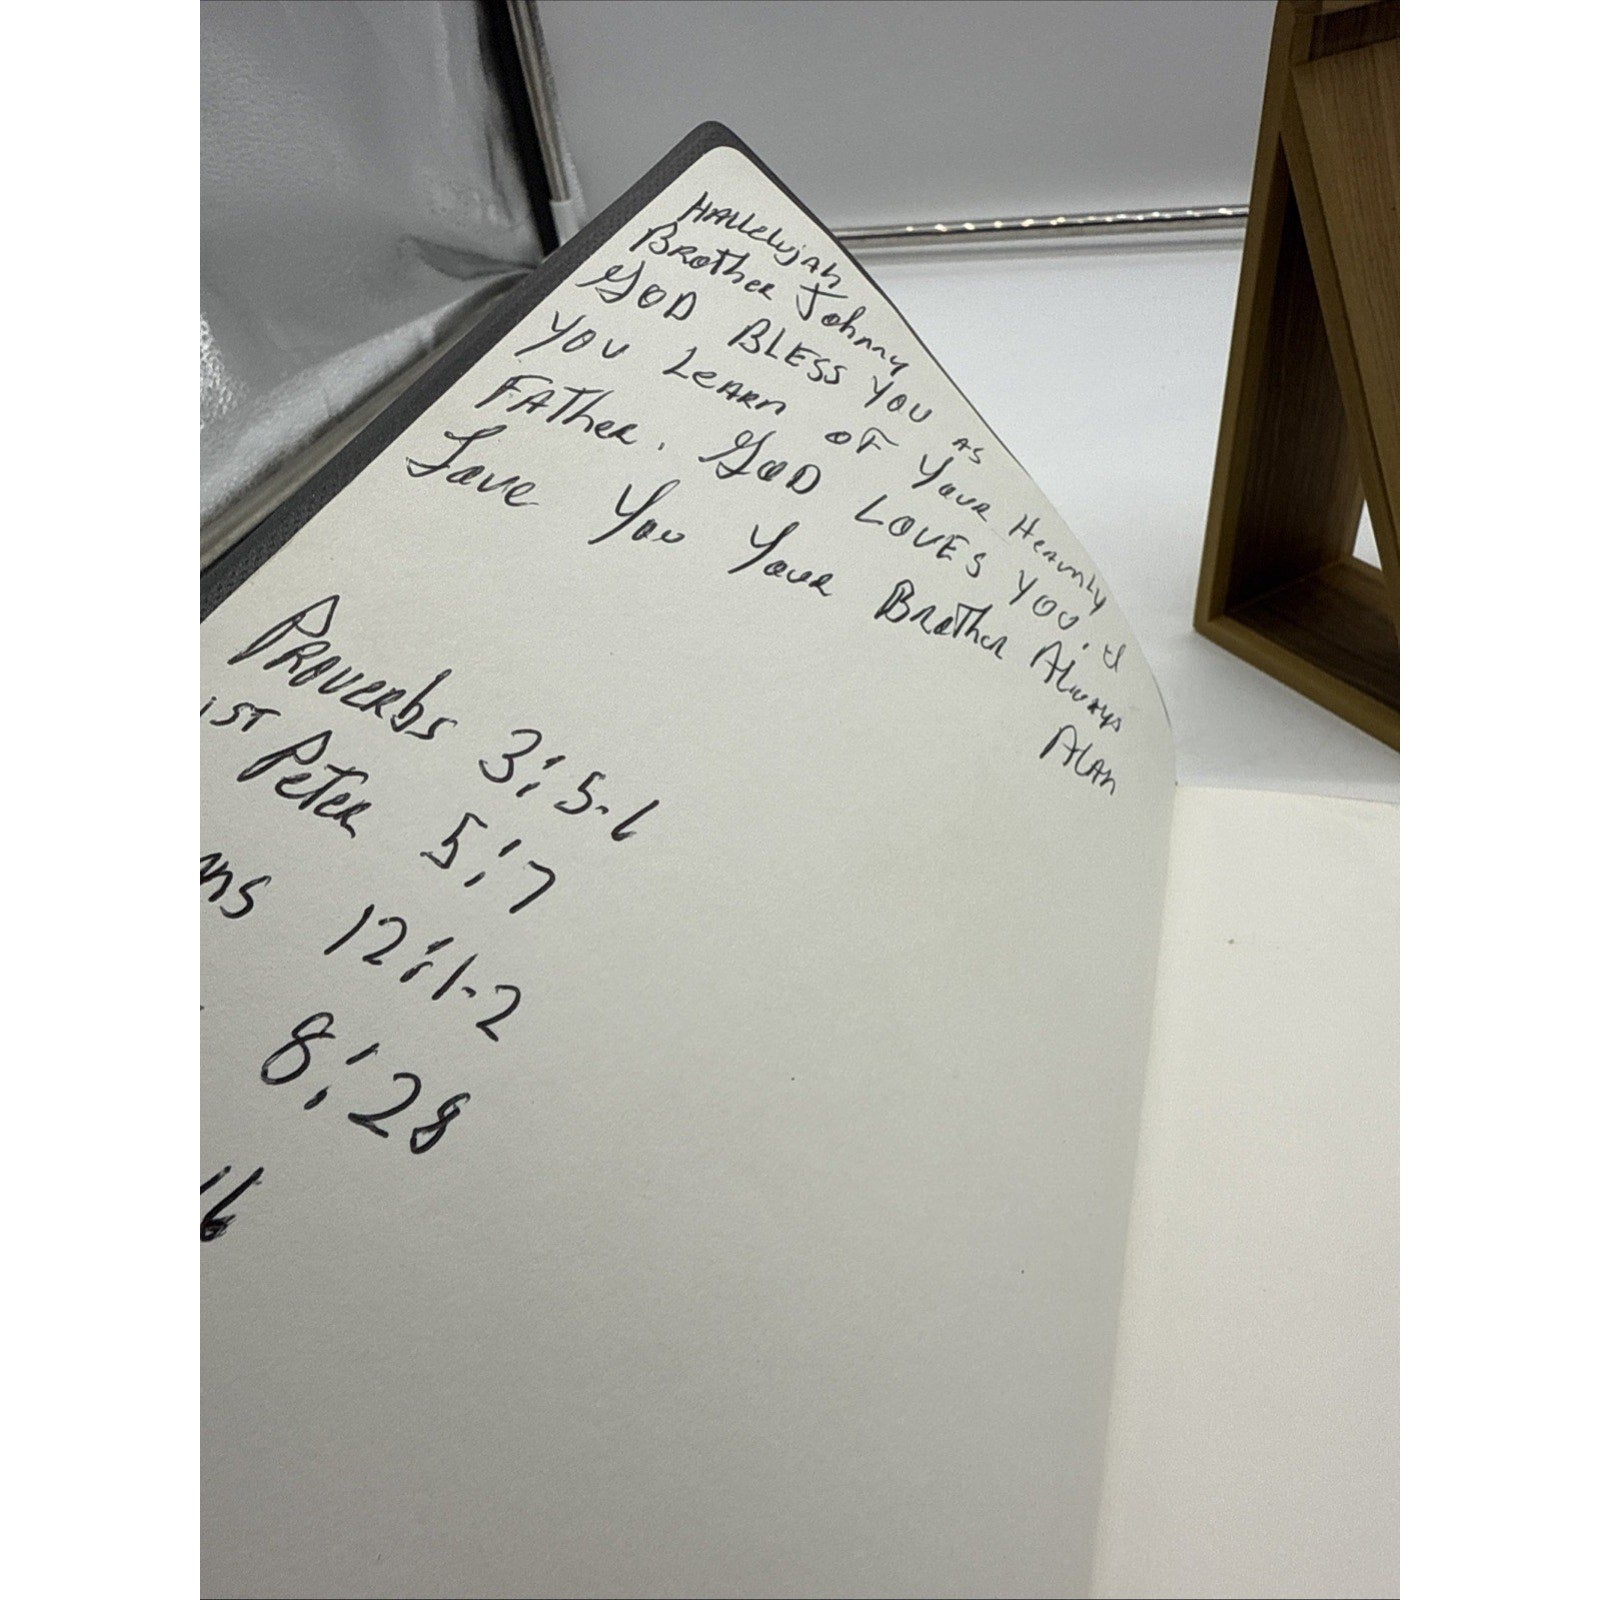 Hallelujah
Brother Johnny
GOD BLESS YOU AS
YOU LEARN OF YOUR HEAVNLY
FATHER. GOD LOVES YOU. I
Love You Your Brother Always
Alan
Proverbs 3:5-6
1ST Peter 5:7
ns 12:1-2
8:28
16